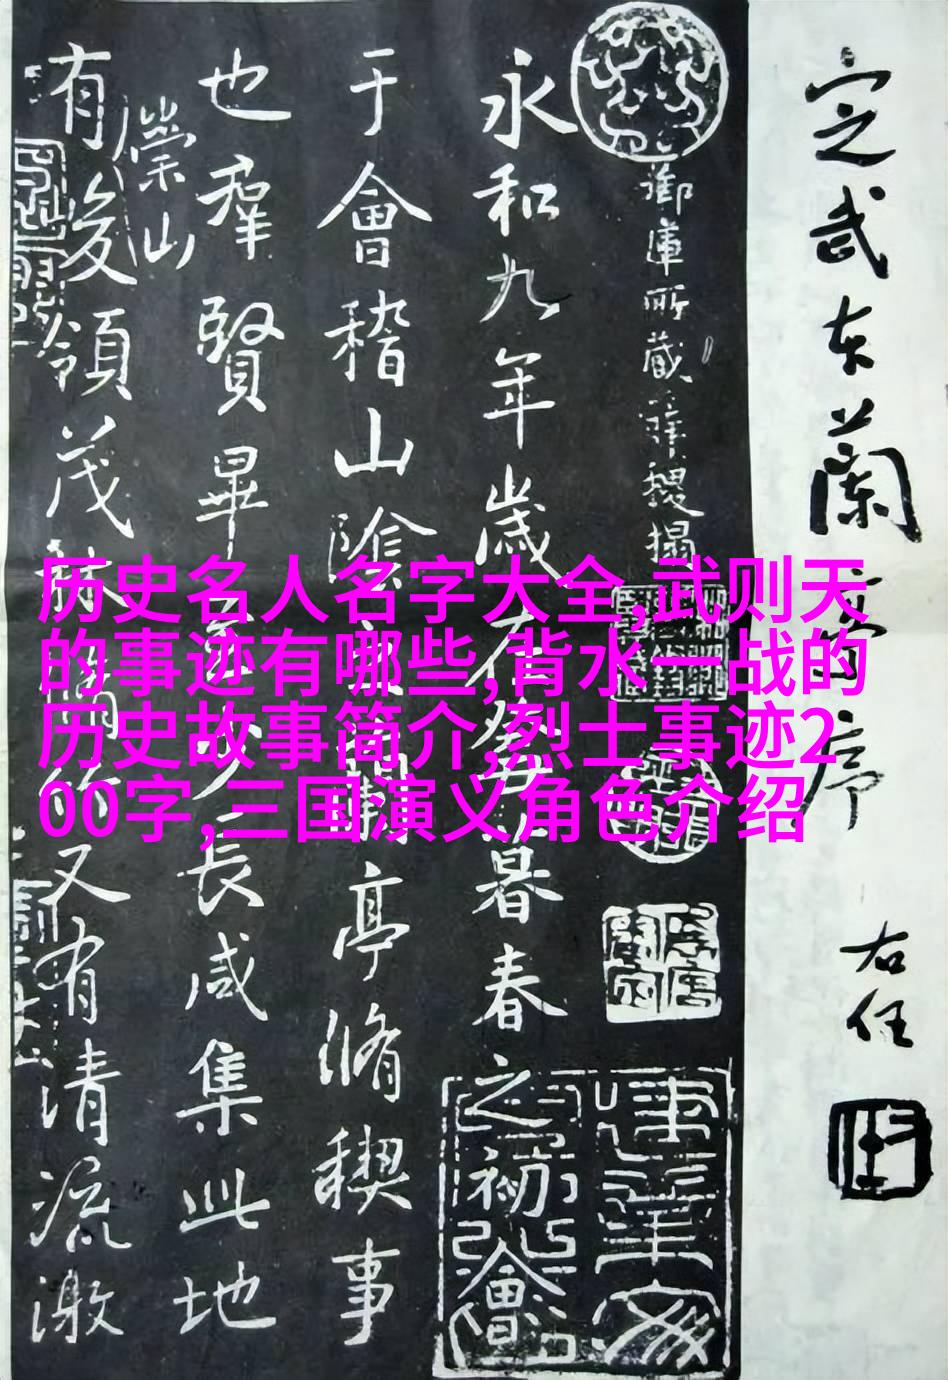 定武本蘭亭序
右任
御庫所藏禊搨
永和九年歲在癸丑暮春之初會
于會稽山陰之蘭亭脩稧事
也羣賢畢至少長咸集此地
有崇山
峻領茂林脩竹又有清流激
历史名人名字大全,武则天
的事迹有哪些,背水一战的
历史故事简介,烈士事迹2
00字,三国演义角色介绍